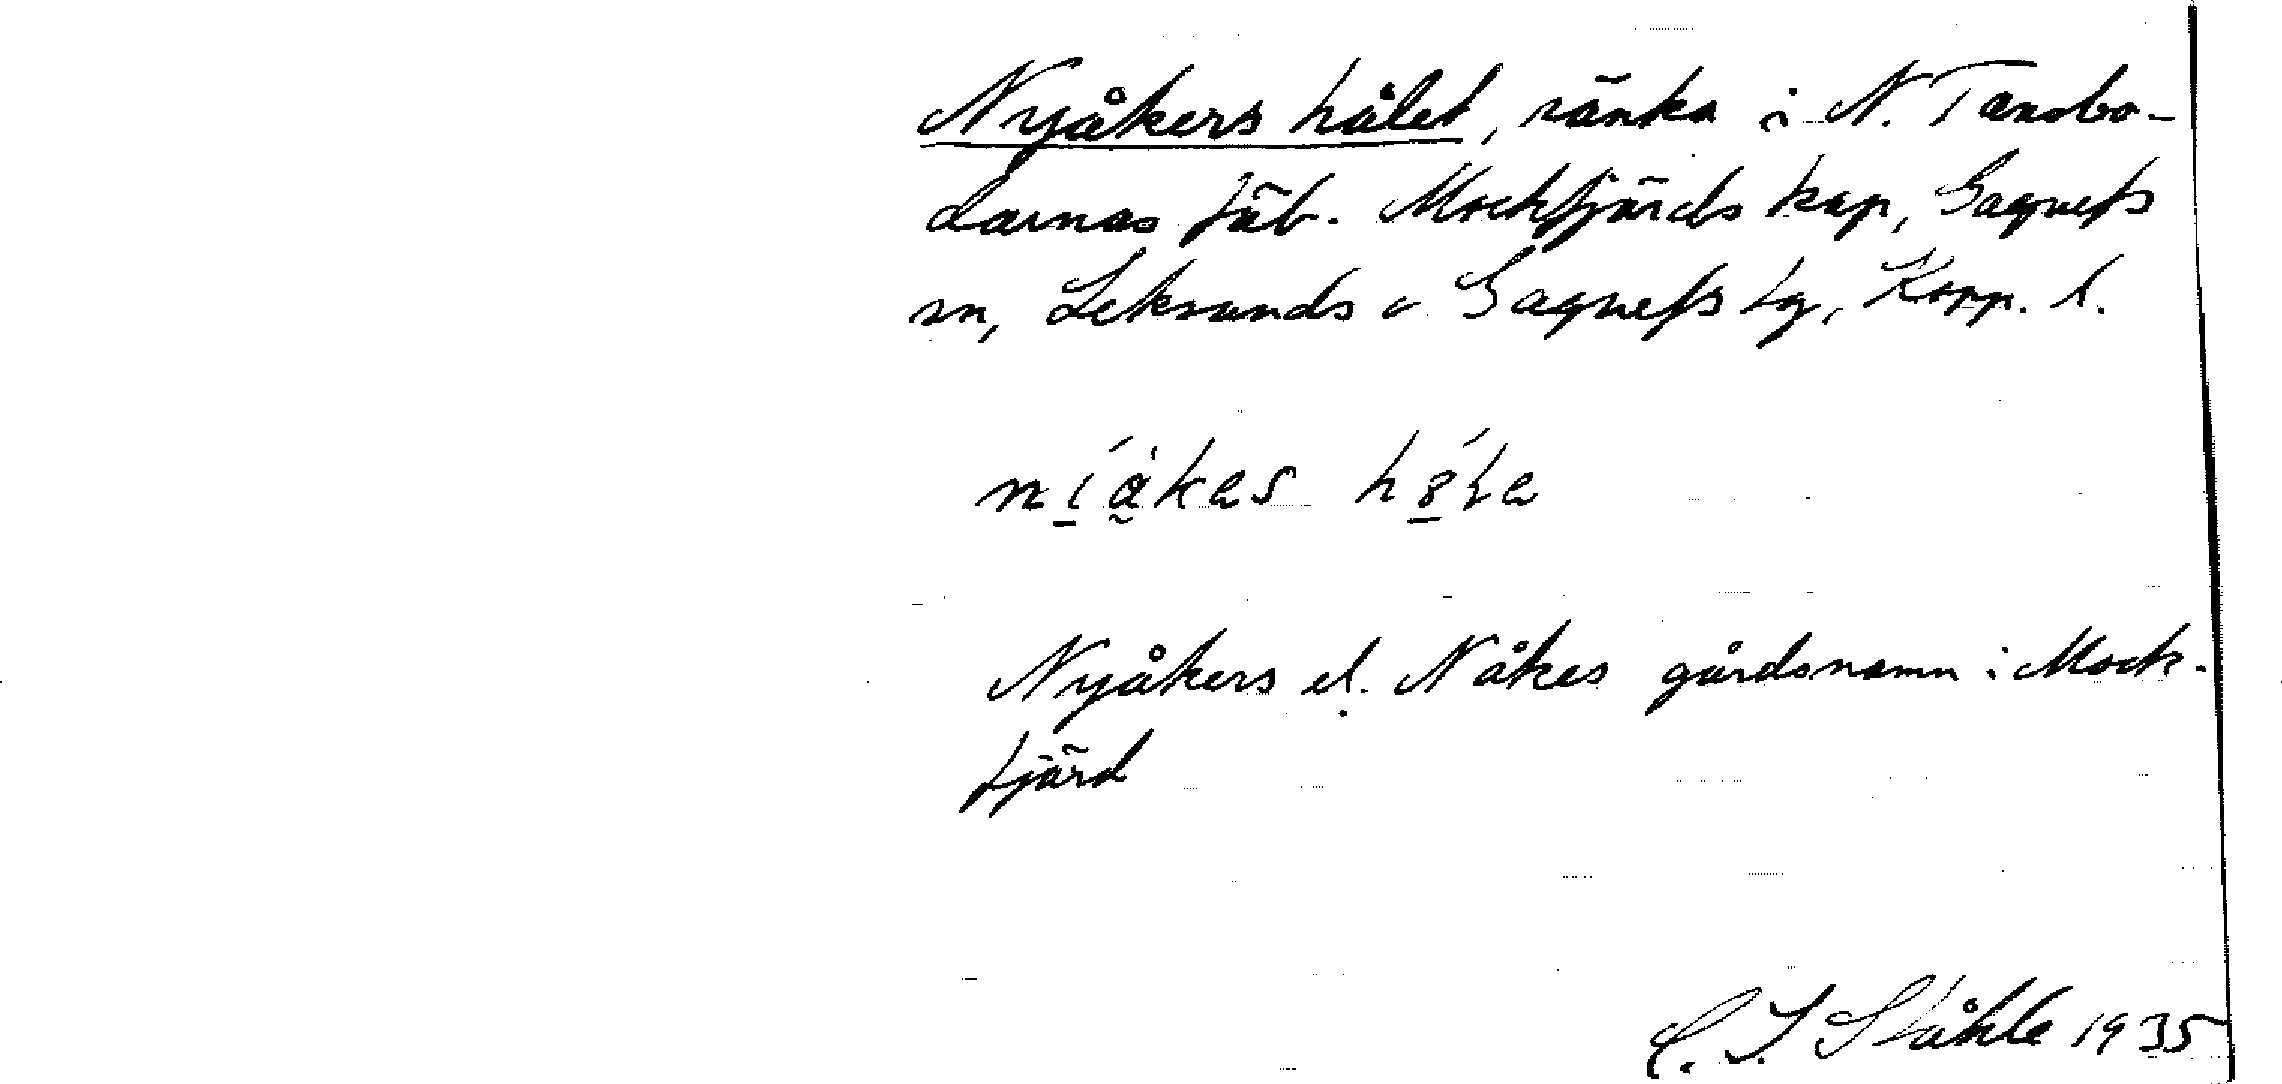 Nyåkers hålet, sänka i N. Tansbo-
darnas fäb. Mockfjärds kap, Gagnefs
sn, Leksands o Gagnefs tg, Kopp. l.
níåkes hó̱le
Nyåkers el. Nåkes gårdsnamn i Mock-
fjärd
C. I. Ståhle 1935